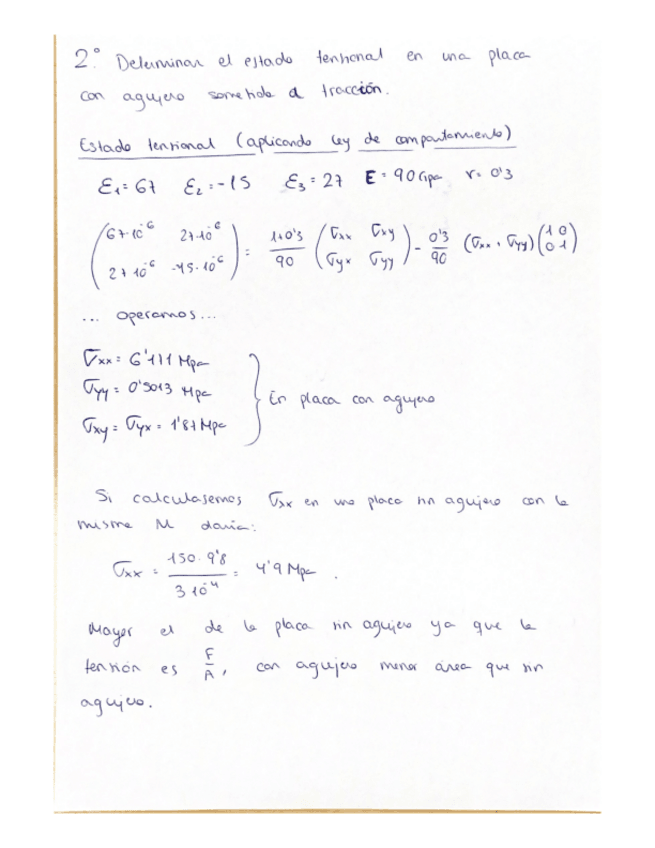 2º Determinar el estado tensional en una placa
con agujero sometida a tracción.
Estado tensional (aplicando ley de comportamiento)
ε₁ = 67 ε₂ = -15 ε₃ = 27 E = 90 Gpa ν = 0'3
(67·10⁻⁶ 27·10⁻⁶ ; 27·10⁻⁶ -15·10⁻⁶) = 1+0'3/90 (σxx σxy ; σyx σyy) - 0'3/90 (σxx + σyy) (1 0 ; 0 1)
... operamos...
σxx = 6'111 Mpa
σyy = 0'5013 Mpa
σxy = σyx = 1'87 Mpa
En placa con agujero
Si calculasemos σxx en una placa sin agujero con la
misma M daría:
σxx = 150·9'8 / 3·10⁻⁴ = 4'9 Mpa.
Mayor el de la placa sin agujero ya que la
tensión es F/A, con agujero menor área que sin
agujero.